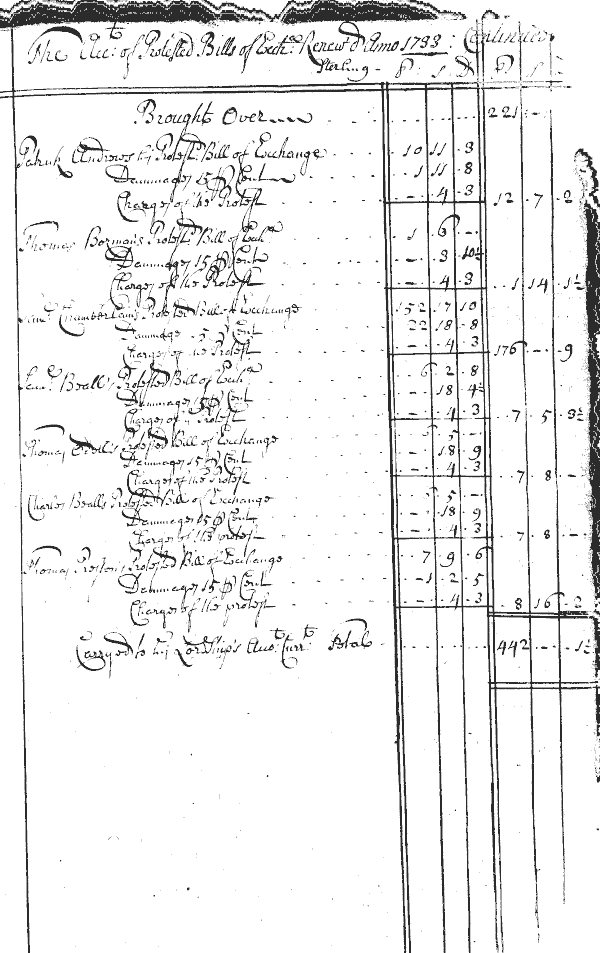 The Acct: of Protested Bills of Exchª Renew'd Anno 1733: Continued
Sterling - P: S D P S
Brought Over 221 : -
Patrick Andrews his Protestd Bill of Exchange 10 11 3
Dammages 15 ⅌ Cent 1 11 8
Charges of the Protest - 4 3 12 7 2
Thomas Bormans Protestd Bill of Exchª 1 6 -
Dammages 15 ⅌ Cent - 3 10½
Charges of the Protest - 4 3 1 14 1½
Chamberlains Protested Bill of Exchange 152 17 10
Dammage 15 ⅌ Cent 22 18 8
Charges of the Protest - 4 3 176 - 9
Beall's Protested Bill of Exchª 6 2 8
Dammages 15 ⅌ Cent - 18 4½
Charges of ye Protest - 4 3 7 5 3½
Thomas Odell's Protested Bill of Exchange 6 5 -
Dammages 15 ⅌ Cent - 18 9
Charges of the Protest - 4 3 7 8 -
Charles Bealls Protested Bill of Exchange 6 5 -
Dammages 15 ⅌ Cent - 18 9
Charges of the protest - 4 3 7 8 -
Thomas Preston's Protested Bill of Exchange 7 9 6
Dammages 15 ⅌ Cent 1 2 5
Charges of the protest - 4 3 8 16 2
Carryed to his Lordship's Acct: Currt Total 442 - 1½